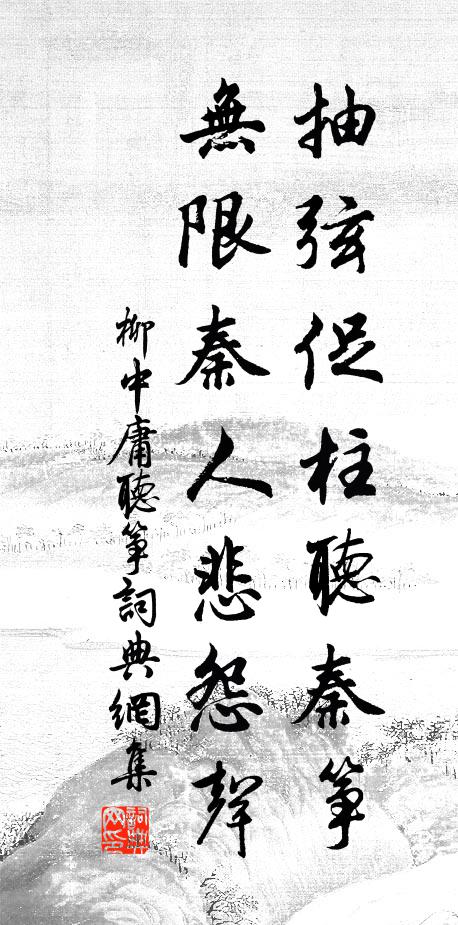 抽弦促柱聽秦箏
無限秦人悲怨聲
柳中庸聽箏詞典網集